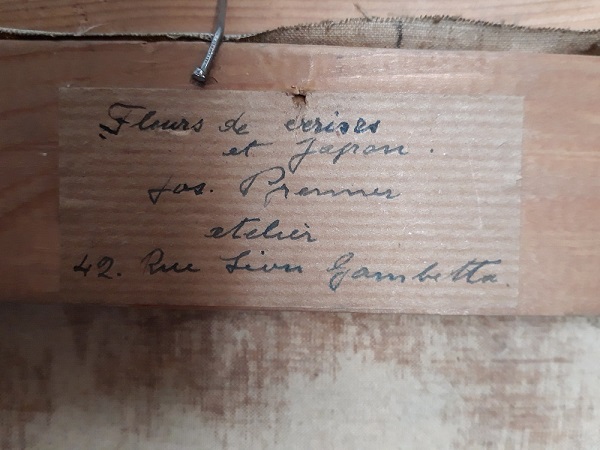 Fleurs de cerises
et Japon.
Jos. Premmer
atelièr
42. Rue Léon Gambetta.